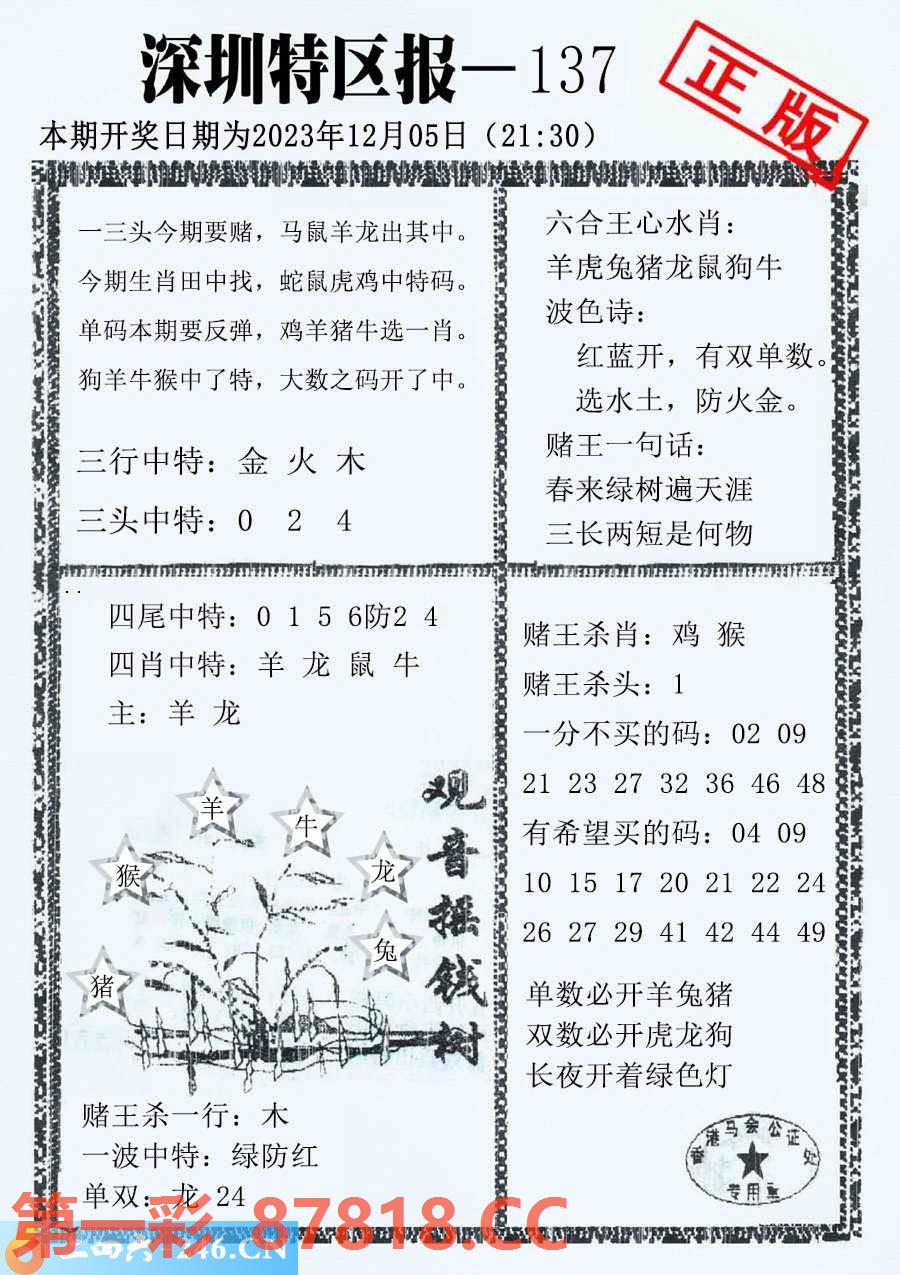 深圳特区报—137
正版
本期开奖日期为2023年12月05日（21:30）
一三头今期要赌，马鼠羊龙出其中。
今期生肖田中找，蛇鼠虎鸡中特码。
单码本期要反弹，鸡羊猪牛选一肖。
狗羊牛猴中了特，大数之码开了中。
三行中特：金 火 木
三头中特：0 2 4
六合王心水肖：
羊虎兔猪龙鼠狗牛
波色诗：
红蓝开，有双单数。
选水土，防火金。
赌王一句话：
春来绿树遍天涯
三长两短是何物
四尾中特：0 1 5 6防2 4
四肖中特：羊 龙 鼠 牛
主：羊 龙
羊
牛
猴
龙
兔
猪
观音摇钱树
赌王杀一行：木
一波中特：绿防红
单双：龙 24
赌王杀肖：鸡 猴
赌王杀头：1
一分不买的码：02 09
21 23 27 32 36 46 48
有希望买的码：04 09
10 15 17 20 21 22 24
26 27 29 41 42 44 49
单数必开羊兔猪
双数必开虎龙狗
长夜开着绿色灯
香港马会公证处
专用章
第一彩 87818.CC
246.CN